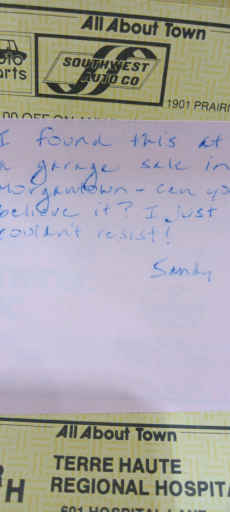 All About Town
SOUTHWEST
AUTO CO
1901 PRAIRI
I found this at
a garage sale in
Morgantown - can yo
believe it? I just
couldn't resist!
Sandy
All About Town
TERRE HAUTE
REGIONAL HOSPITA
601 HOSPITAL LANE